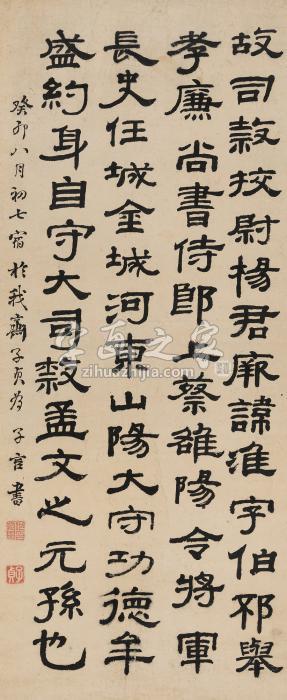 故司隸挍尉楊君厥諱淮字伯邳舉
孝廉尚書侍郎上蔡雒陽令將軍
長史任城金城河東山陽大守功德牟
盛約身自守大司隸孟文之元孫也
癸卯八月初七宿於我齋子貞為子官書
字画之家
zihuazhijia.com